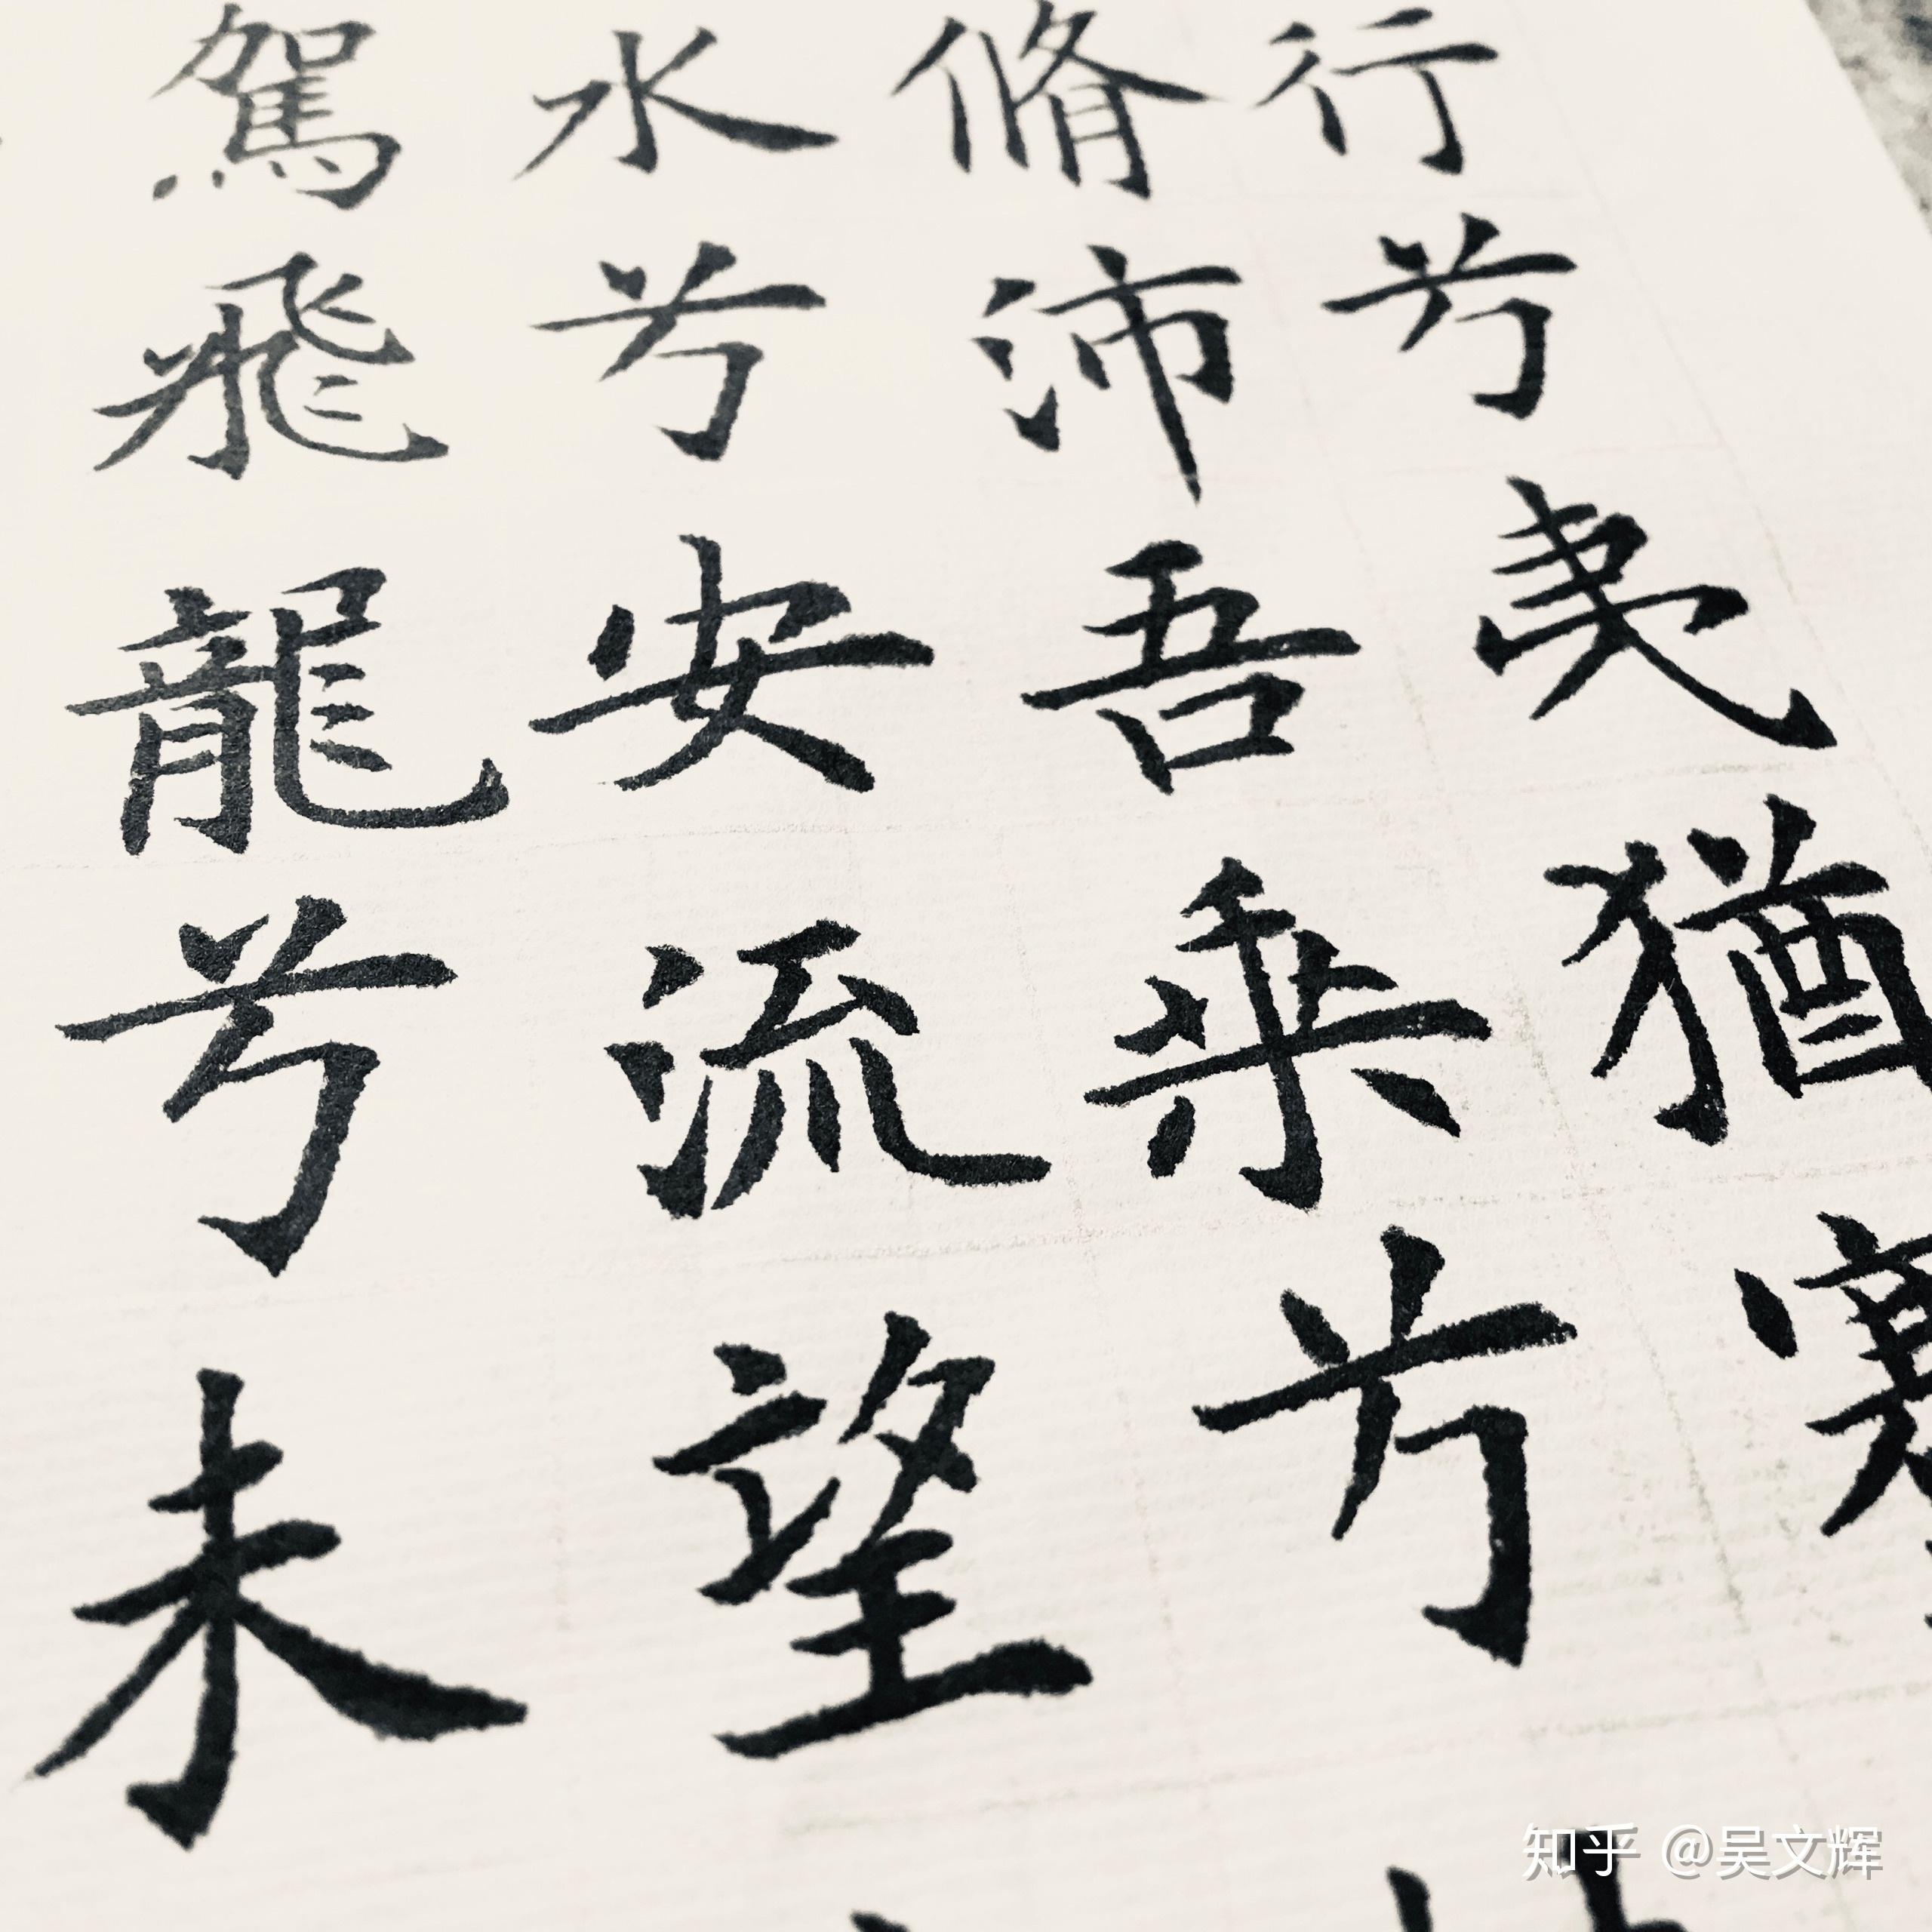 行兮夷猶
脩沛吾乘兮
水兮安流望
駕飛龍兮未
知乎 @吴文辉